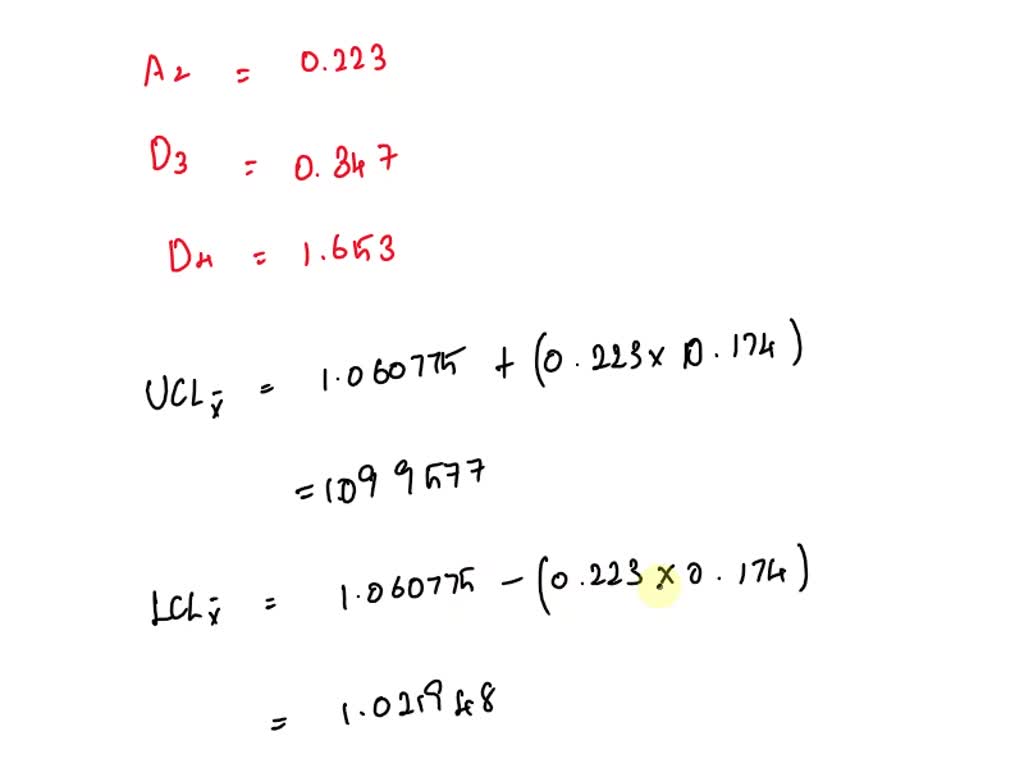 A2 = 0.223
D3 = 0.347
D4 = 1.653
UCLx̄ = 1.060775 + (0.223 x 0.174)
= 1099577
LCLx̄ = 1.060775 - (0.223 x 0.174)
= 1.021948